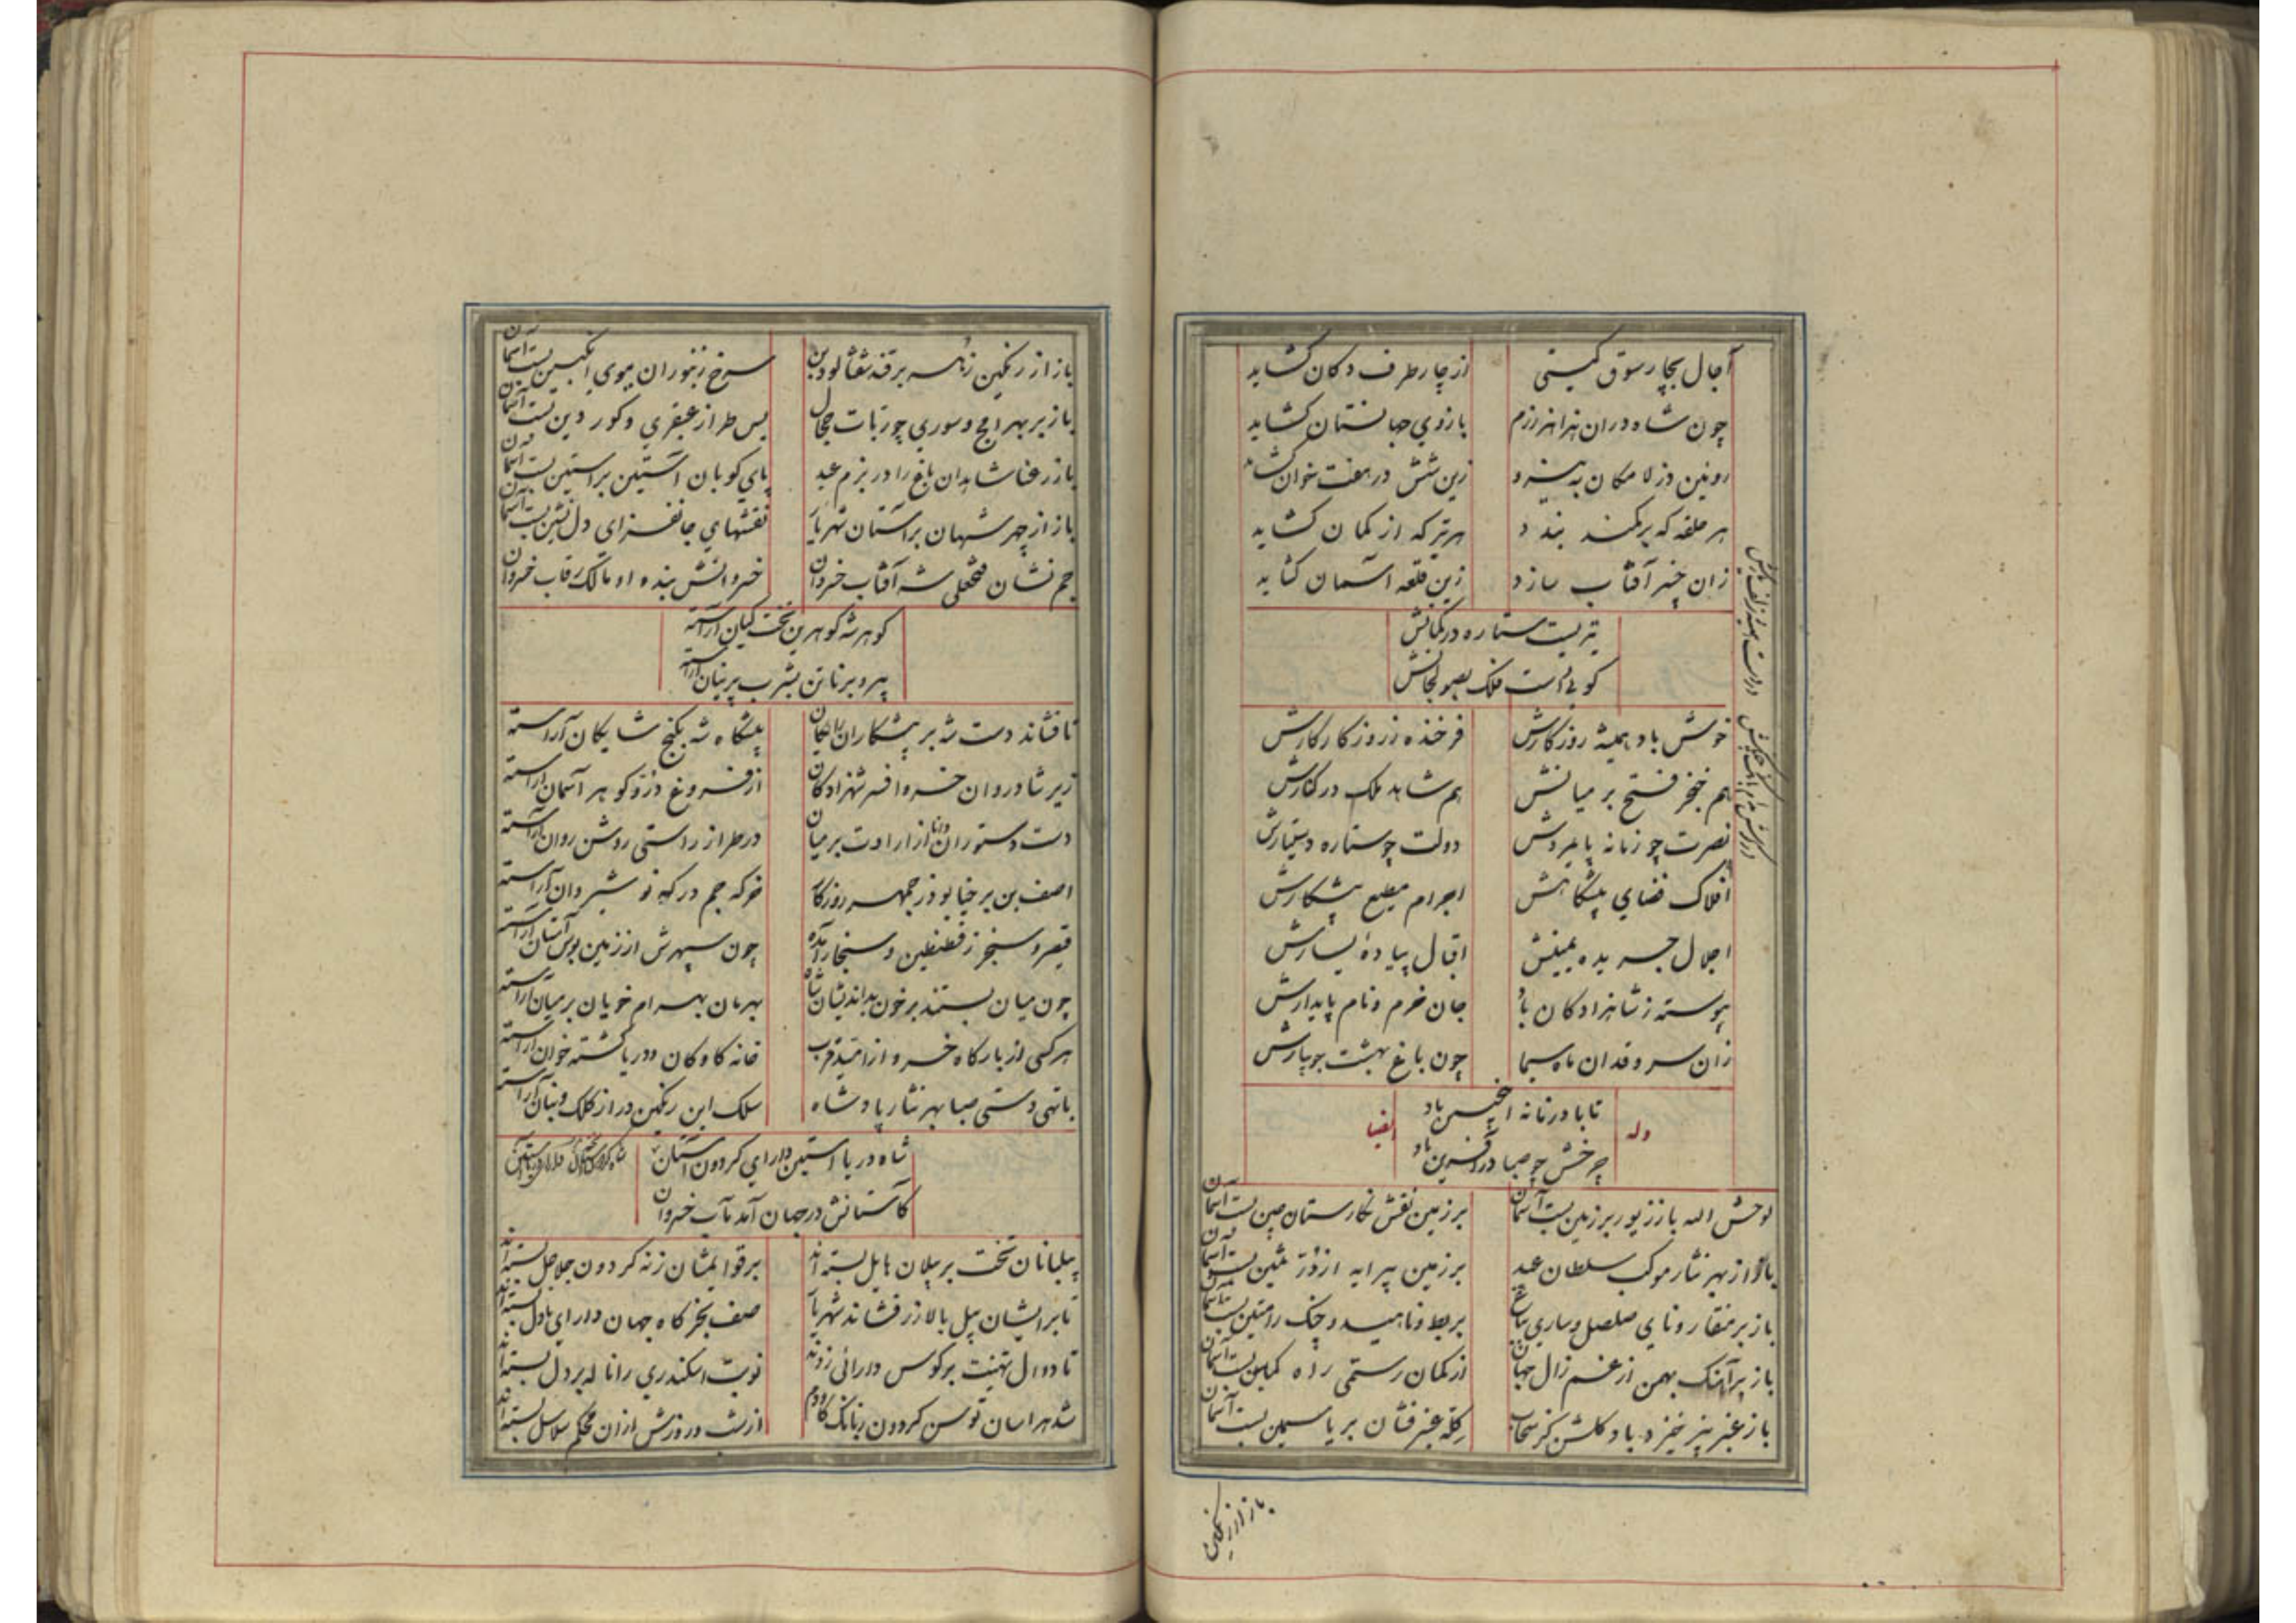 آجال بچار سوق گیتی از چار طرف دکان گشاید
چون شاه دران هزاهز رزم بازوی جهانستان گشاید
روئین دز لامکان به نیرو زین شش در هفت خوان گشاید
هر حلقه که بر کمند بندد هر تیر که از کمان گشاید
زان خنجر آفتاب سازد زین قلعه آسمان گشاید
تیریست ستاره در کمانش
کوئیست فلک بصولجانش
خوش باد همیشه روزگارش فرخنده ز روزگار کارش
هم خنجر فتح بر میانش هم شاهد ملک در کنارش
نصرت چو زمانه پایمردش دولت چو ستاره دستیارش
افلاک فضای پیشگاهش اجرام مطیع پیشکارش
اجلال جریده یمینش اقبال پیاده یسارش
پیوسته ز شاهزادگان باد جان خرم و نام پایدارش
زان سرو قدان ماه سیما چون باغ بهشت جویبارش
تا باد زمانه اینچنین باد
چرخش چو صبا در آفرین باد
وله ایضا
لوحش الله باز زیور بر زمین بست آسمان بر زمین نقش نگارستان چین بست آسمان
یا از بهر نثار موکب سلطان عید بر زمین پیرایه از در ثمین بست آسمان
باز بر منقار و نای صلصل و ساری باغ بربط ناهید و چنگ رامتین بست آسمان
باز بر آهنگ بهمن از غم زال جهان از کمان رستمی راه کمین بست آسمان
باز عنبر بیز خیزد باد گلشن کز سحاب کله عنبر فشان بر یاسمین بست آسمان
باز از رنگین
باز از رنگین زهره برقه شفتالود بن سرخ زنبوران ببوی انگبین بست آسمان
باز بر بهرامج و سوری چو ربات حجال بس طراز عبقری و کور دین بست آسمان
باز رعنا شاهدان باغ را در بزم عید پای کوبان آستین بر آستین بست آسمان
باز از چهر شهان بر آستان شهریار نقشهای جانفزای دل نشین بست آسمان
جم نشان فتحعلی شه آفتاب خسروان خسروانش بنده او مالک رقاب خسروان
گوهر شه گوهرین تخت کیان آراسته
پیر و برنا تن بشرب پرنیان آراسته
تا فشاند دست شه بر پیشکاران رایگان پیشگاه شه بگنج شایگان آراسته
زیر شادروان خسرو افسر شهزادگان از فروغ در و گوهر آسمان آراسته
دست دستوران دانا از ارادت بر میان در طراز راستی روشن روان آراسته
آصف بن برخیا بوذرجمهر روزگار خرگه جم درگه نوشیروان آراسته
قیصر و سنجر ز قسطنطین و سنجار آمده چون سپهرش از زمین بوس آستان آراسته
چون میان بستند بر خون بداندیشان شاه بهرمان بهرام خویان بر میان آراسته
هر کسی از بارگاه خسرو از امید قرب خانه کاو کان و دریا گشته خوان آراسته
با تهی دستی صبا بهر نثار پادشاه سلک این رنگین در از کلک و بنان آراسته
شاه دریا آستین دارای گردون آستان
کاستانش در جهان آمد مآب خسروان
پیلبانان تخت بر پیلان هایل بسته اند بر قوایمشان ز نه گردون جلاجل بسته اند
تا بر ایشان پیل بالا زر فشاند شهریار صف بخرگاه جهان دارای باذل بسته اند
تا دوال تهنیت بر کوس دارائی زدند نوبت اسکندری را ناله بر دل بسته اند
شد هراسان توسن گردون ز بانگ گاودم از شب و روزش از آن محکم سلاسل بسته اند